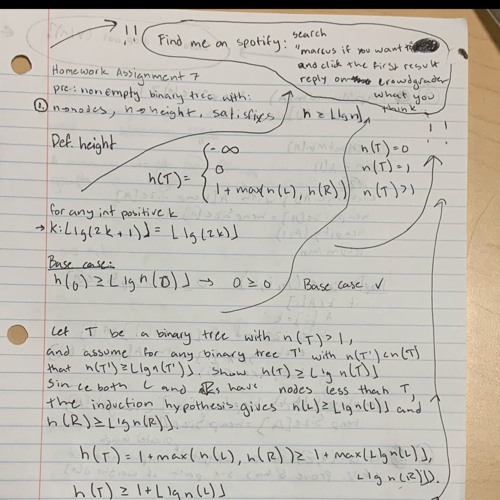 !! Find me on spotify: search
"marcus if you want
and click the first result
reply on crowdgrader
what you
think
!!
Homework Assignment 7
pre: nonempty binary tree with:
① n→nodes, h→height, satisfies h ≥ ⌊lg n⌋
Def. height
h(T) = { -∞ n(T)=0
0 n(T)=1
1 + max(h(L), h(R)) n(T)>1
for any int positive k
→ k: ⌊lg(2k+1)⌋ = ⌊lg(2k)⌋
Base case:
≥ ⌊lg n( )⌋ → 0 ≥ 0 Base case ✓
Let T be a binary tree with n(T)>1,
and assume for any binary tree T' with n(T')<n(T)
that h(T') ≥ ⌊lg n(T')⌋. Show h(T) ≥ ⌊lg n(T)⌋
Since both L and R have nodes less than T,
the induction hypothesis gives h(L) ≥ ⌊lg n(L)⌋ and
h(R) ≥ ⌊lg n(R)⌋.
h(T) = 1 + max(h(L), h(R)) ≥ 1 + max(⌊lg n(L)⌋,
⌊lg n(R)⌋).
h(T) ≥ 1 + ⌊lg n(L)⌋